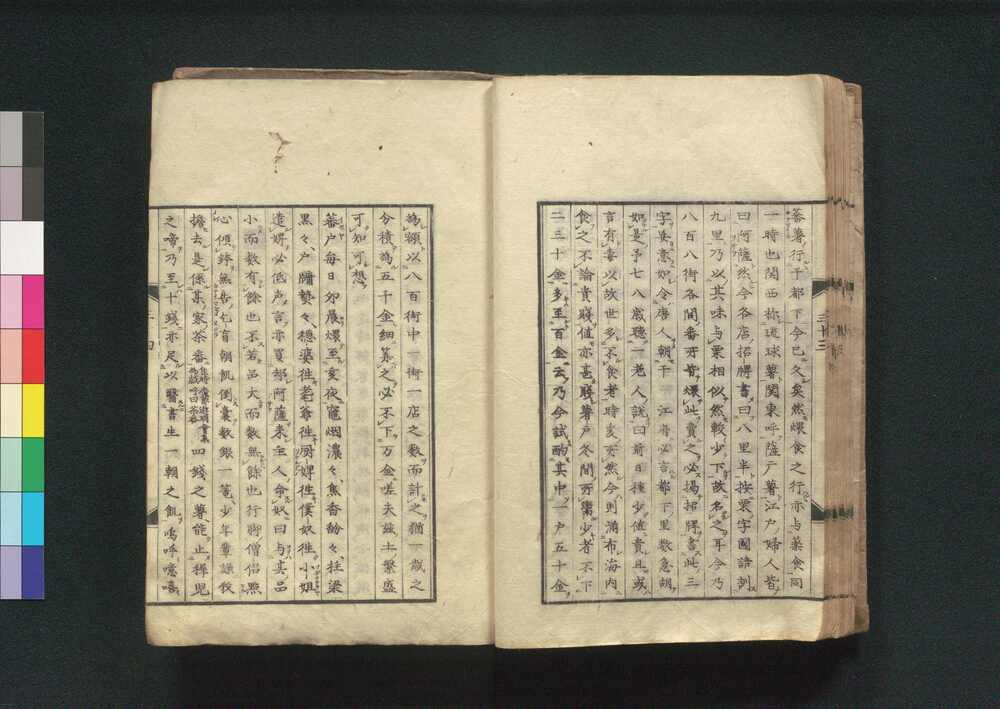 蕃薯行于都下今已久矣然煨食之行亦与薬食同
一時也関西称琉球薯関東呼薩广薯江戸婦人皆
曰阿薩然今各店招牌書曰八里半按栗字国語訓
九里乃以其味与栗相似然較少下故名之耳今乃
八百八街各閭番所賣煨此賣之必掲招牌書此三
字其意如令唐人朝于 江府必言都下里数急胡
如是予七八歳聴一老人説曰前日種少値貴且或
言有毒以故世多不食者時変所然今則満布海内
食之不論貴賤値亦甚賤薯戸冬間所鬻少者不下
二三十金多至百金云乃今試酌其中一戸五十金
三十三
為額以八百街中一街一店之数而計之猶一歳之
分積為五千金細算之必不下万金嗟夫茲土繁盛
可知可想
蕃戸毎日卯晨煨至亥夜竈烟濃々焦香馚々柱梁
黒々戸牖艶々穏婆徃老爺徃厨婢徃僕奴徃小姐
造姸必低声言亦買却阿薩来主人命奴曰与其品
小而数有餘也不若品大而数無餘也行脚僧侶黙
心傾鉢無告乞盲朝飢倒嚢数銀一 少年輩謙
擔去是係某家茶番 四錢之薯能止稗児
之啼乃至十錢亦足以醫書生一朝之飢嗚呼噫嘻